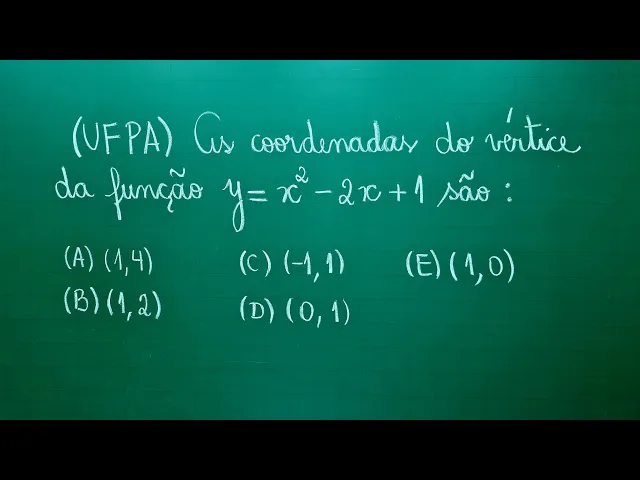 (UFPA) As coordenadas do vértice
da função y = x² - 2x + 1 são :
(A) (1,4) (C) (-1,1) (E) (1,0)
(B) (1,2) (D) (0,1)